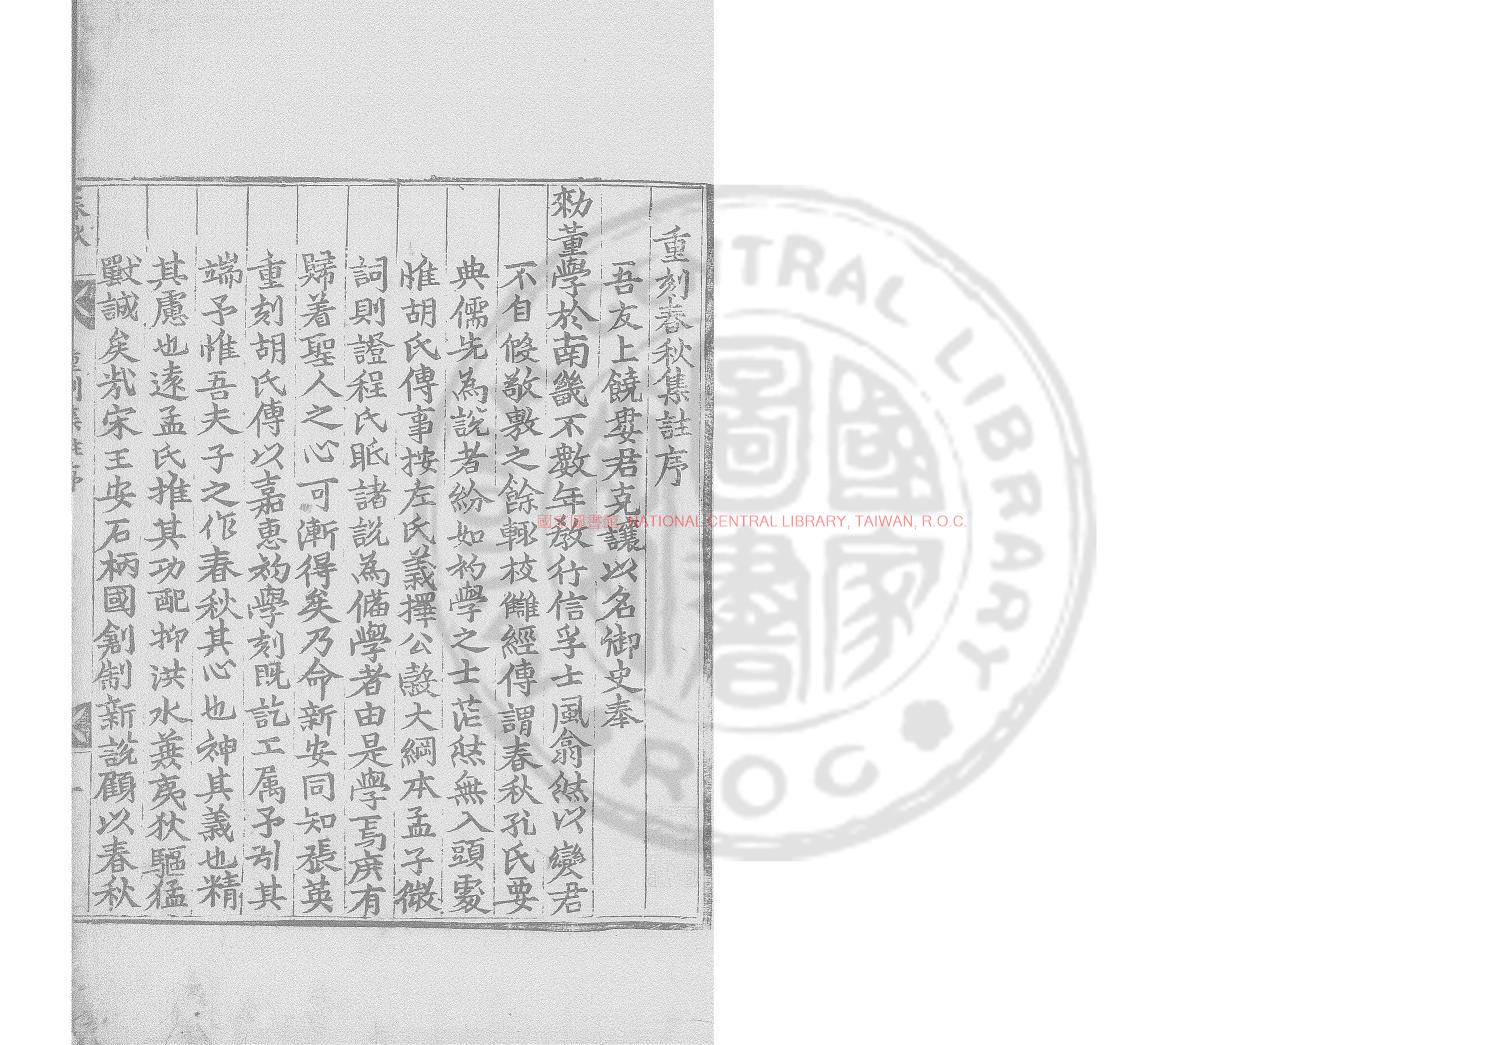 重刻春秋集註序
吾友上饒婁君克讓以名御史奉
勑董學於南畿不數年教行信孚士風翕然以變君
不自假敭敷之餘輒校讎經傳謂春秋孔氏要
典儒先為說者紛如初學之士茫然無入頭處
惟胡氏傳事按左氏義擇公糓大綱本孟子微
詞則證程氏眂諸說為備學者由是學焉庶有
歸着聖人之心可漸得矣乃命新安同知張英
重刻胡氏傳以嘉惠初學刻既訖工属予引其
端予惟吾夫子之作春秋其心也神其義也精
其慮也遠孟氏推其功配抑洪水兼夷狄驅猛
獸誠矣㢤宋王安石柄國創制新說顧以春秋
春秋
重刻集註序
一
國家圖書館 NATIONAL CENTRAL LIBRARY, TAIWAN, R.O.C.
國家圖書
CENTRAL LIBRARY
ROC